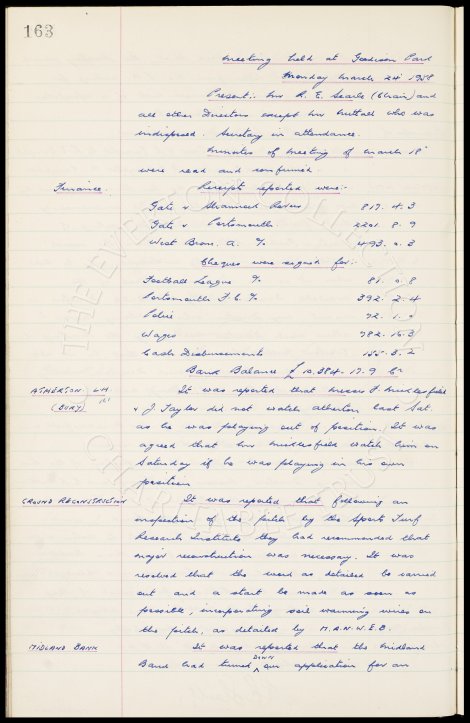 163
Meeting held at Goodison Park
Monday March 24 1958
Present:- Mr R. E. Searle (Chair) and
all other Directors except Mr Nuttall who was
indisposed. Secretary in attendance.
Minutes of meeting of March 18
were read and confirmed
Finance. Receipts reported were:-
Gate v Shamrock Rovers 817. 4. 3
Gate v Portsmouth 2201. 8. 9
West Brom. A. % 493. 2. 3
Cheques were signed for:-
Football League % 81. 2. 8
Portsmouth F.C. % 392. 2. 4
Police 72. 1. 
Wages 782. 16. 3
Cash Disbursements 155. 3. 2
Bank Balance £10,384. 17. 9 Cr
ATHERTON LH (BURY) It was reported that Messrs F. Middlesfield
& J. Taylor did not watch Atherton last Sat.
as he was playing out of position. It was
agreed that Mr Middlesfield watch him on
Saturday if he was playing in his own
position
GROUND RECONSTRUCTION It was reported that following an
inspection of the pitch by the Sports Turf
Research Institute they had recommended that
major reconstruction was necessary. It was
resolved that the work as detailed be carried
out and a start be made as soon as
possible, incorporating soil warming wires on
the pitch, as detailed by M.A.N.W.E.B.
MIDLAND BANK It was reported that the Midland
Bank had turned down our application for an
THE EVERTON COLLECTION
CHARITABLE TRUST